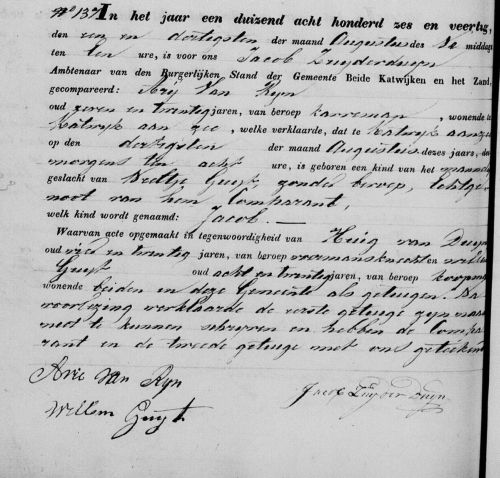 No 137. In het jaar een duizend acht honderd zes en veertig,
den een en dertigsten der maand Augustus des middags
ten ure, is voor ons Jacob Zuyderduyn
Ambtenaar van den Burgerlijken Stand der Gemeente Beide Katwijken en het Zand,
gecompareerd: Arij Van Ryn
oud zeven en twintig jaren, van beroep karreman, wonende te
Katwyk aan Zee, welke verklaarde, dat te Katwyk aan zee
op den dertigsten der maand Augustus dezes jaars, des
morgens ten acht ure, is geboren een kind van het mannelijk
geslacht van Neeltje Guyt, zonder beroep, Echtge-
noot van hem Comparant,
welk kind wordt genaamd: Jacob.
Waarvan acte opgemaakt in tegenwoordigheid van Huig van Duyn
oud en twintig jaren, van beroep voermansknecht en Willem
Guyt oud acht en twintig jaren, van beroep koopman
wonende beiden in deze Gemeente als getuigen. Na
voorlezing verklaarde de eerste getuige zyn naam
niet te kunnen schryven en hebben de Compa-
rant en de tweede getuige met ons geteekend
Arie Van Ryn
Jacob Zuyderduyn
Willem Guyt.